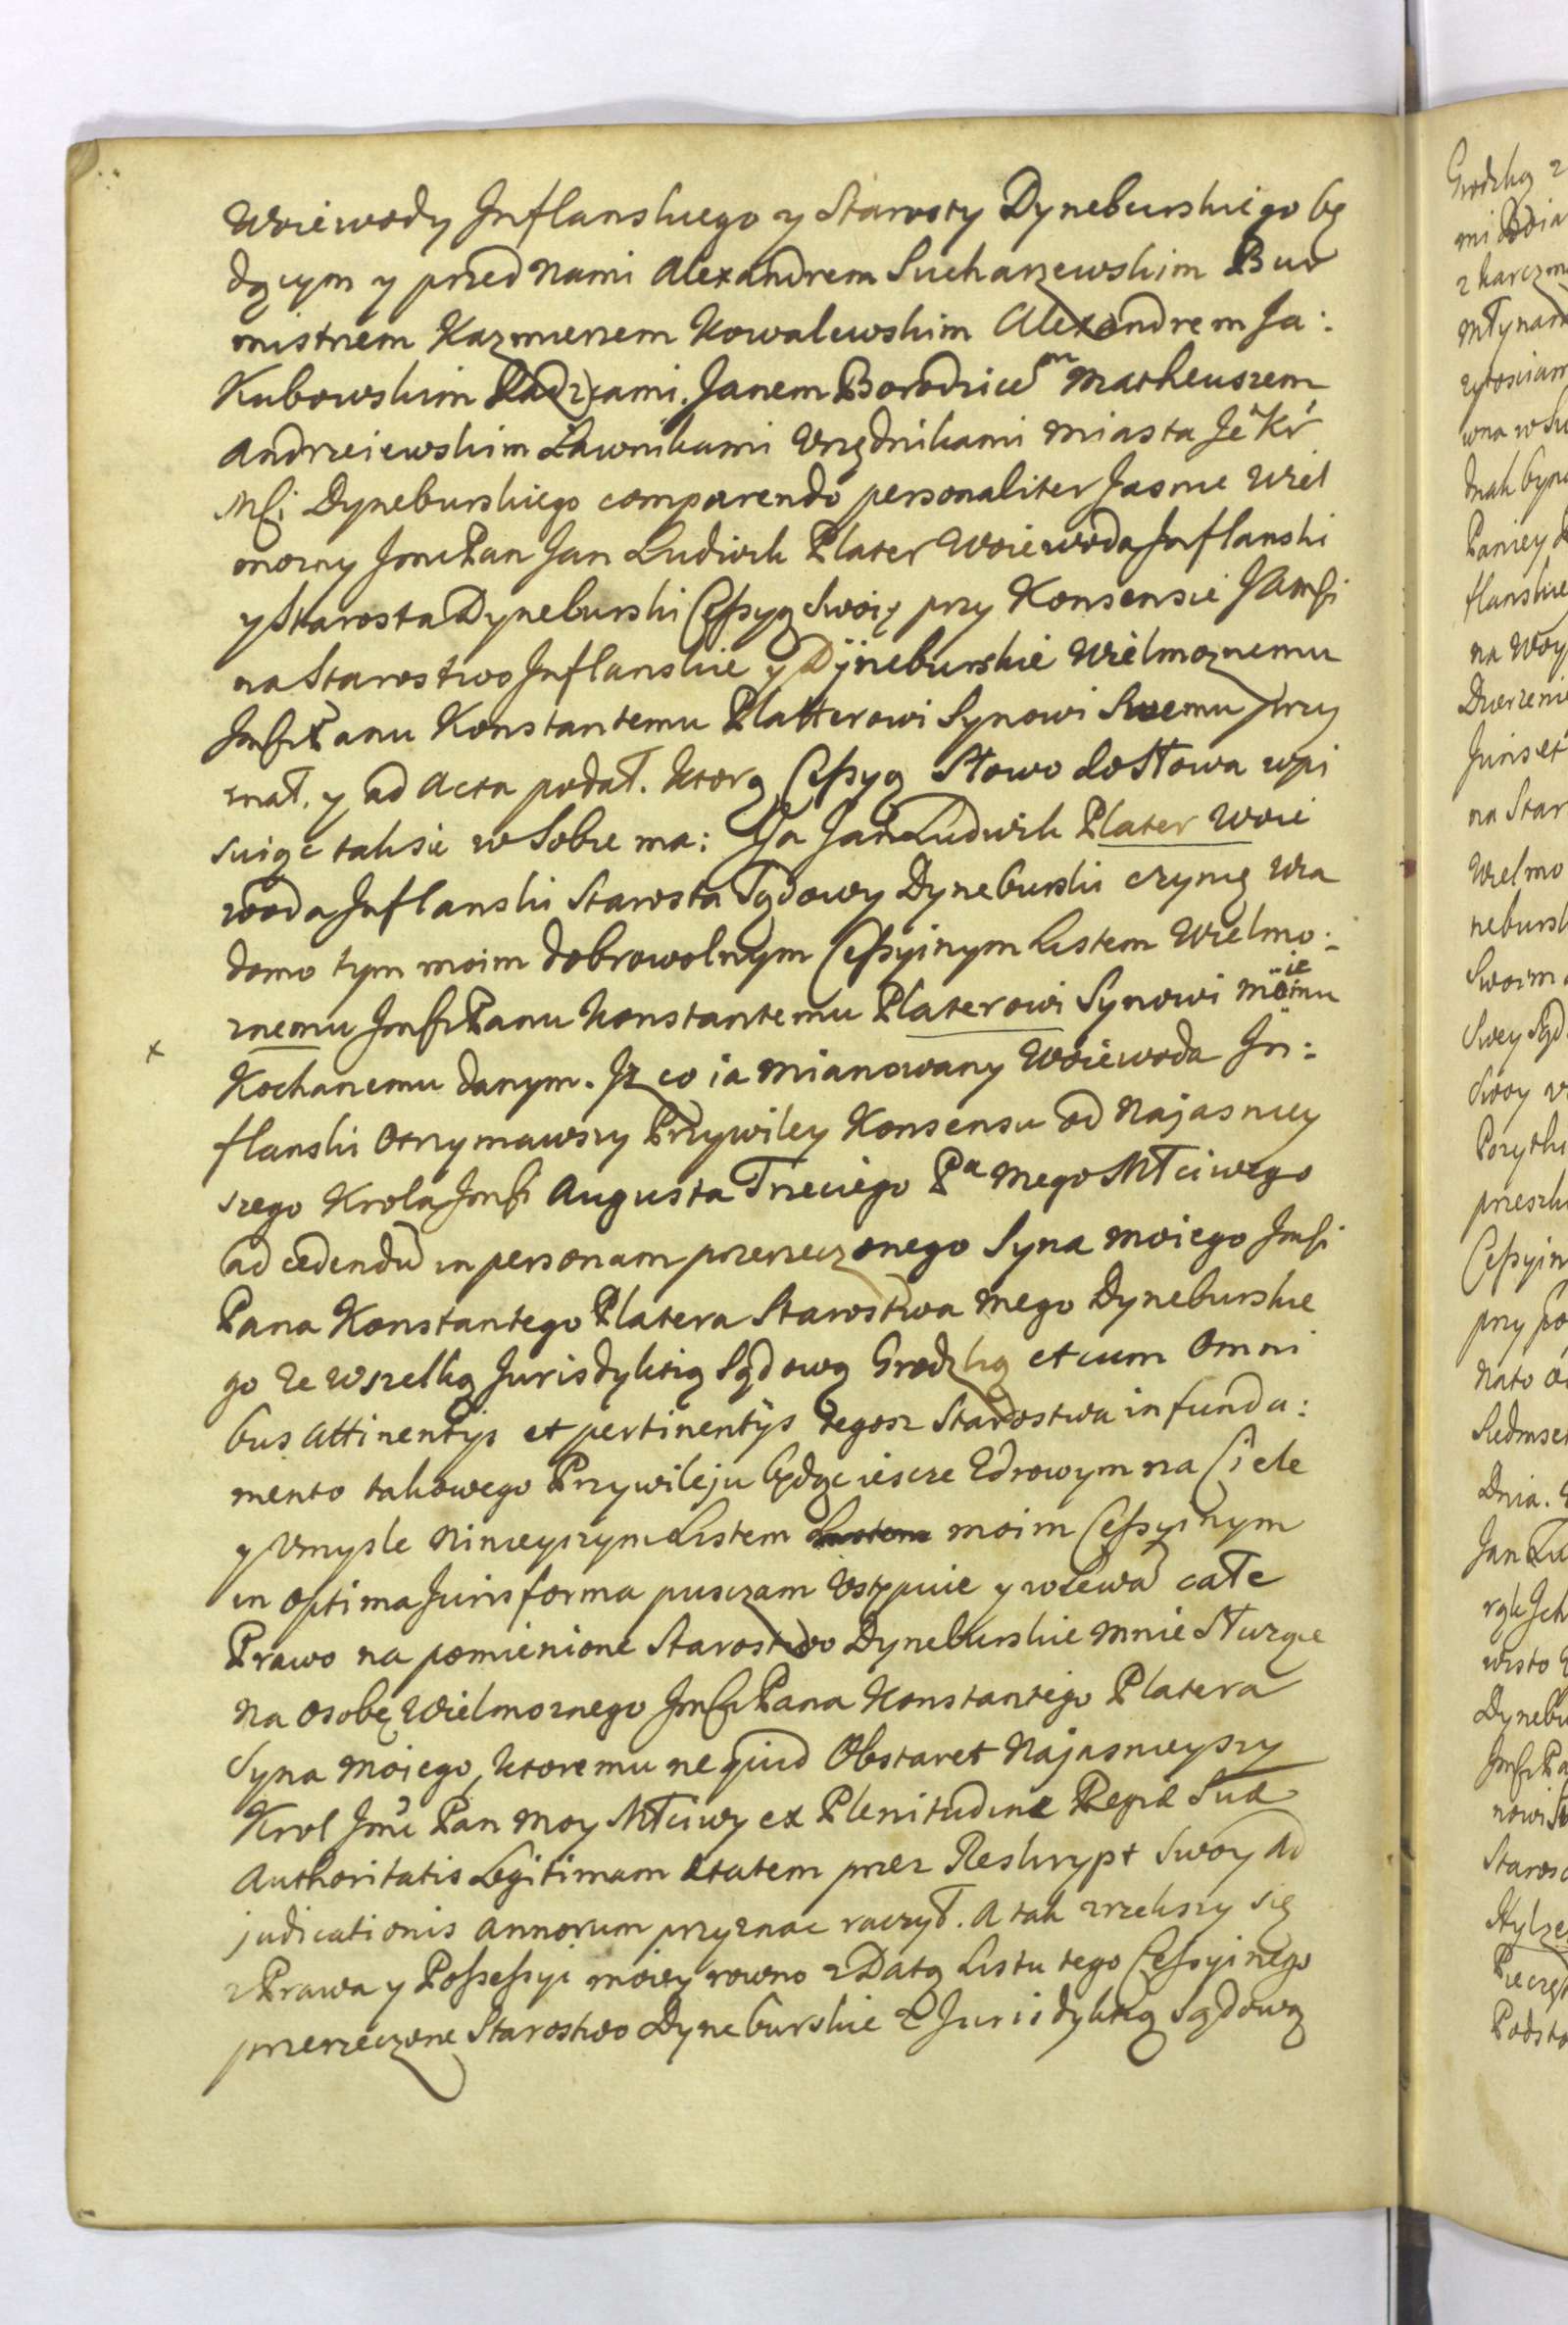 Woiewody Inflanskiego y Starosty Dyneburskiego bę
dącym y przed Nami Alexandrem Sucharzewskim Bur
mistrzem Kazmierzem Kowalewskim Alexandrem Ja:
Kubowskim Radzcami. Janem Borodzicem Matheuszem
Andrzeiewskim Ławnikami Vrzędnikami Miasta Je Kr
Msci Dyneburskiego comparendo personaliter Jasnie Wiel
mozny Jmc Pan Jan Ludwik Plater Woiewoda Inflanski
y Starosta Dyneburski Cessyą Swoię przy Konsensie JKMsci
na Starostwo Inflanskie y Dyneburskie Wielmoznemu
Jmsci Panu Konstantemu Platterowi Synowi Swemu przy
znał. y ad Acta podał. Ktorą Cessyą Słowo do Słowa wpi
suiąc tak sie w Sobie ma: Ja Jan Ludwik Plater Woie
woda Inflanski Starosta Sądowy Dyneburski czynię Wia
domo tym moim dobrowolnym Cessyinym Listem Wielmo:
znemu Jmsci Panu Konstantemu Platerowi Synowi moiemu
Kochanemu danym. Iz co ia mianowany Woiewoda In:
flanski Otrzymawszy Przywiley Konsensu od Najasniey
szego Krola Jmsci Augusta Trzeciego Pa Mego Młciwego
ad cedendu in personam przerzeczonego Syna moiego Jmsci
Pana Konstantego Platera Starostwa mego Dyneburskie
go Ze wszelką Jurisdyktią Sądową Grodzką et cum Omni
bus Attinentijs et pertinentijs tegosz Starostwa in funda:
mento takowego Przywileju będąc iescze Zdrowym na Ciele
y Vmysle Ninieyszym Listem Listem moim Cessyinym
in Optima Juris forma pusczam Vstępuie y wlewa całe
Prawo na pomienione Starostwo Dyneburskie mnie Słuzące
Na Osobę Wielmoznego Jmsci Pana Konstantego Platera
Syna Moiego, Ktoremu ne quid Obstaret Najasnieyszy
Krol Jmc Pan Moy Młciwy ex Plenitudine Regiæ Suæ
Authoritatis Legitimam ætatem przez Reskrypt Swoy Ad
judicationis Annorum przyznac raczył. A tak zrzekszy się
z Prawa y Possessyi moiey rowno z Datą Listu tego Cessyinego
przerzeczone Starostwo Dyneburskie z Jurisdyktią Sądową